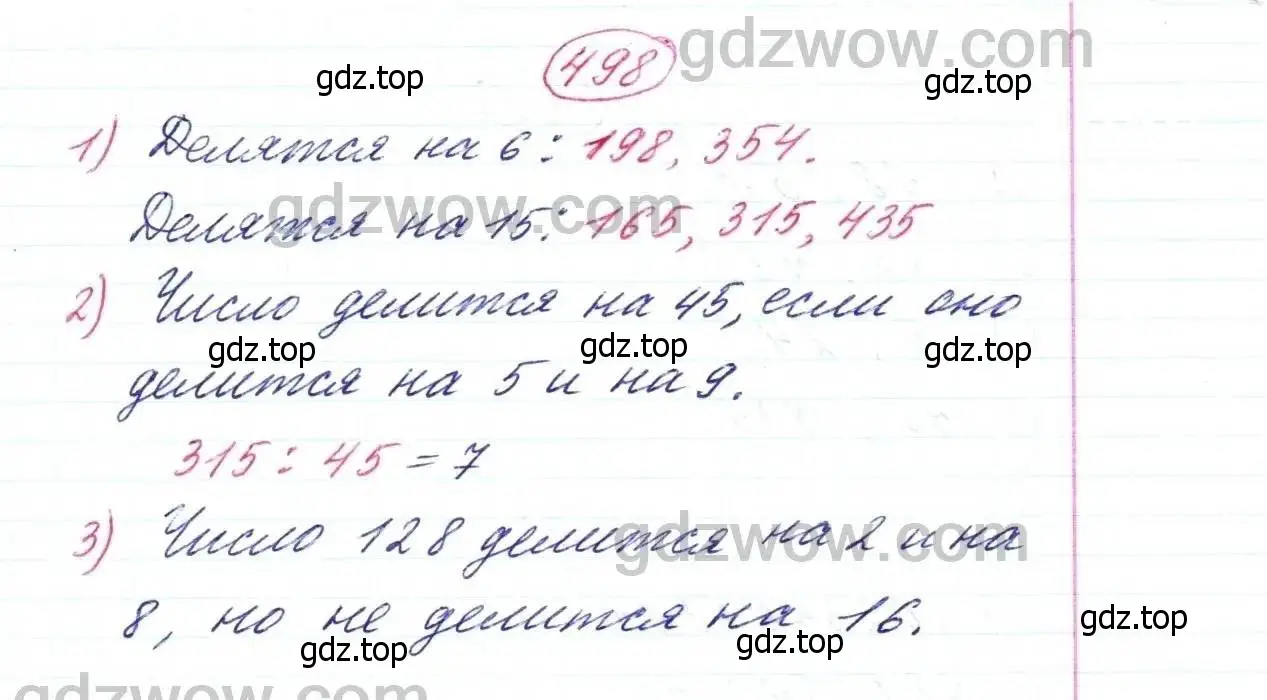 498
gdzwow.com
gdz.top
gdz.top
1) Делятся на 6: 198, 354.
gdzwow.com
Делятся на 15: 165, 315, 435
2) Число делится на 45, если оно
gdz.top
gdz.top
gdz.top
делится на 5 и на 9.
315 : 45 = 7
3) Число 128 делится на 2 и на
gdzwow.com
8, но не делится на 16.
gdz.top
gdz.top
gdz.top
gdzwow.com